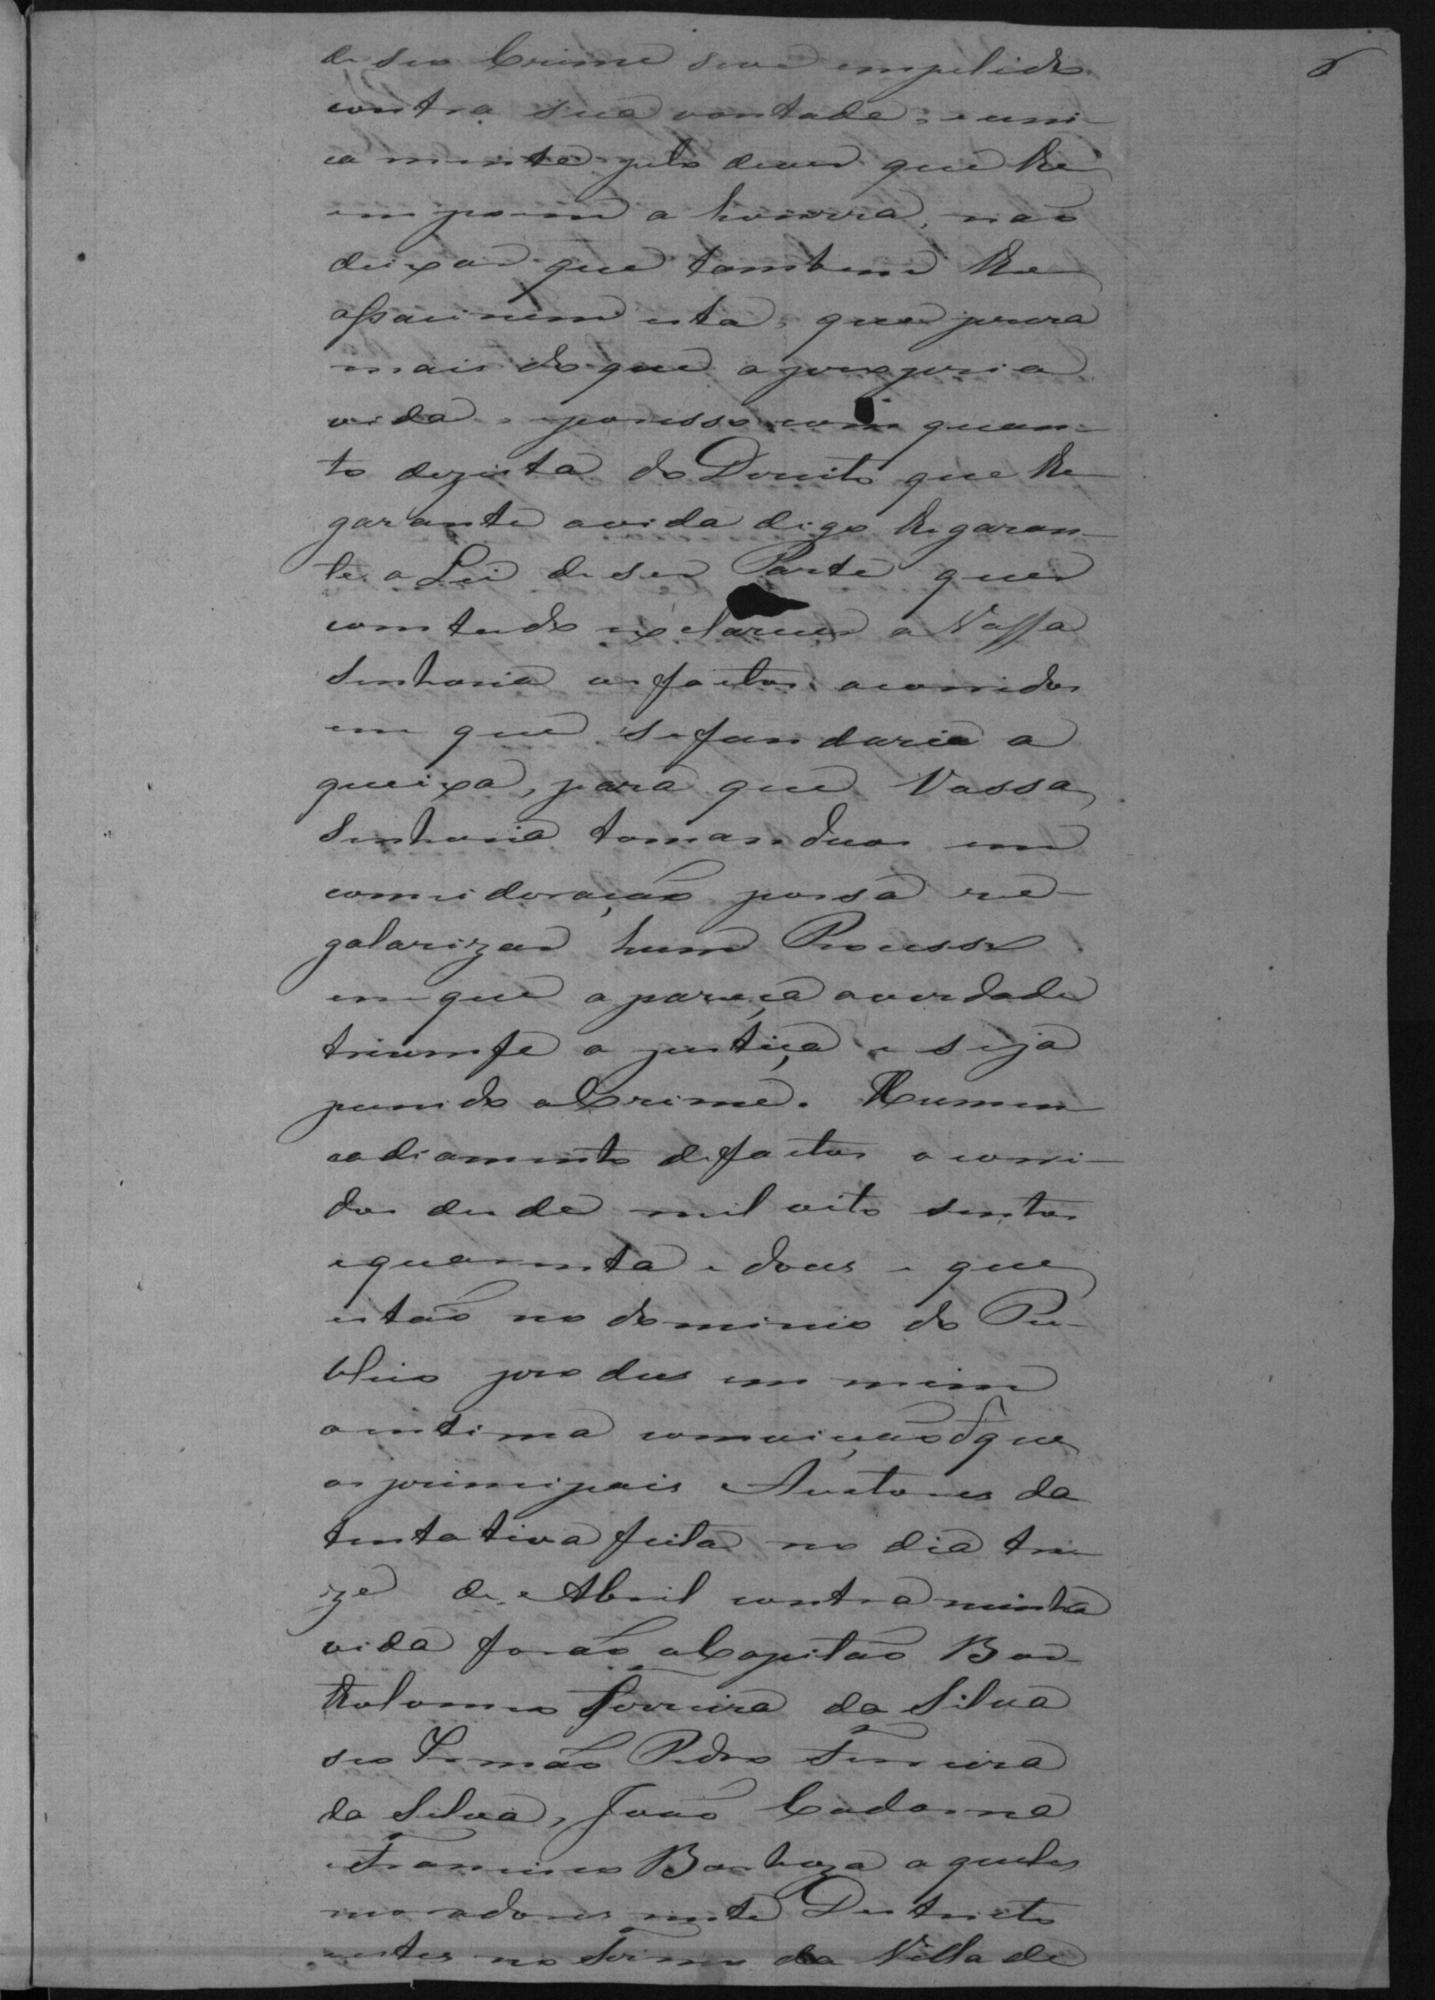 de seu Crime seve empelido
contra sua vontade; e uni-
camente pelo dever que lhe
impoem a honrra, não
deixar que tambem lhe
assacinem esta, que preza
mais do que a propria
vida, e porisso com quan-
to dezista do Dereito que lhe
garante avida digo lhe garan-
te a Lei de ser Parte quer
comtudo exclarecer a Vossa
Senhoria os factos acorridos
em que se fundaria a
queixa, para que Vossa
Senhoria tomandoos em
considoração possa re-
galarizar hum Processo
em que apareça averdade
triumfe a justiça e seja
punido oCrime. Humen
cadiamento de factos acorri-
dos desde mil oito sentos
equarenta e dous e que
estão no dominio do Pu-
blico produs em mim
aintima comvicção de que
os principais Auctores da
tentativa feita no dia tre-
ze de Abril contra minha
vida forão oCapitão Bar-
tholomeo Ferreira da Silva
seo Irmão Pedro Ferreira
da Silva, João Cada
Francisco Barboza aqueles
moradores neste Destricto
estes no Termo da Villa de